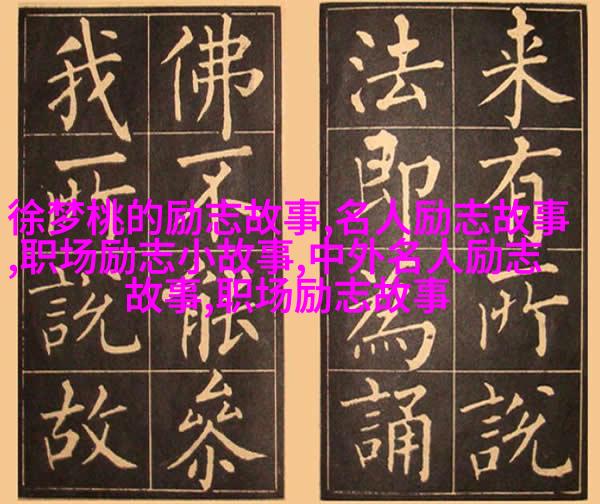 来有所說
法即為誦
佛不能叅
我所說故
徐梦桃的励志故事,名人励志故事
,职场励志小故事,中外名人励志
故事,职场励志故事